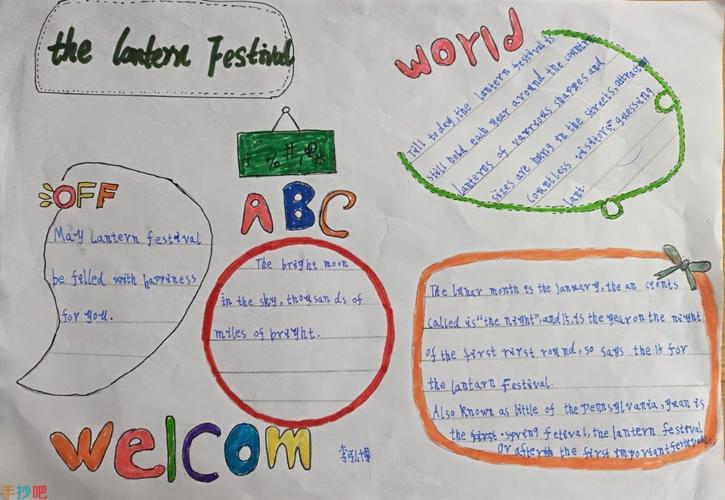 the lantern Festival
world
Till today, the lantern festival is
still hold each year around the country
lanterns of vareious shapes and
sizes are being in the streets, attracting
countless visitors." guessing
lant-
OFF
May Lantern festival
be filled with happiness
for you.
ABC
The bright moon
in the sky, thousands of
miles of bright.
The lunar month is the January, the an cients
called is "the night", and it, is the year on the night
of the first rirst round, so says the 15 for
the lantarn Festival.
Also known as little of the Pennsylvania, yuan is
the first spring fetival, the lantern festival
Or afterth the first important festivals.
welcom
手抄吧